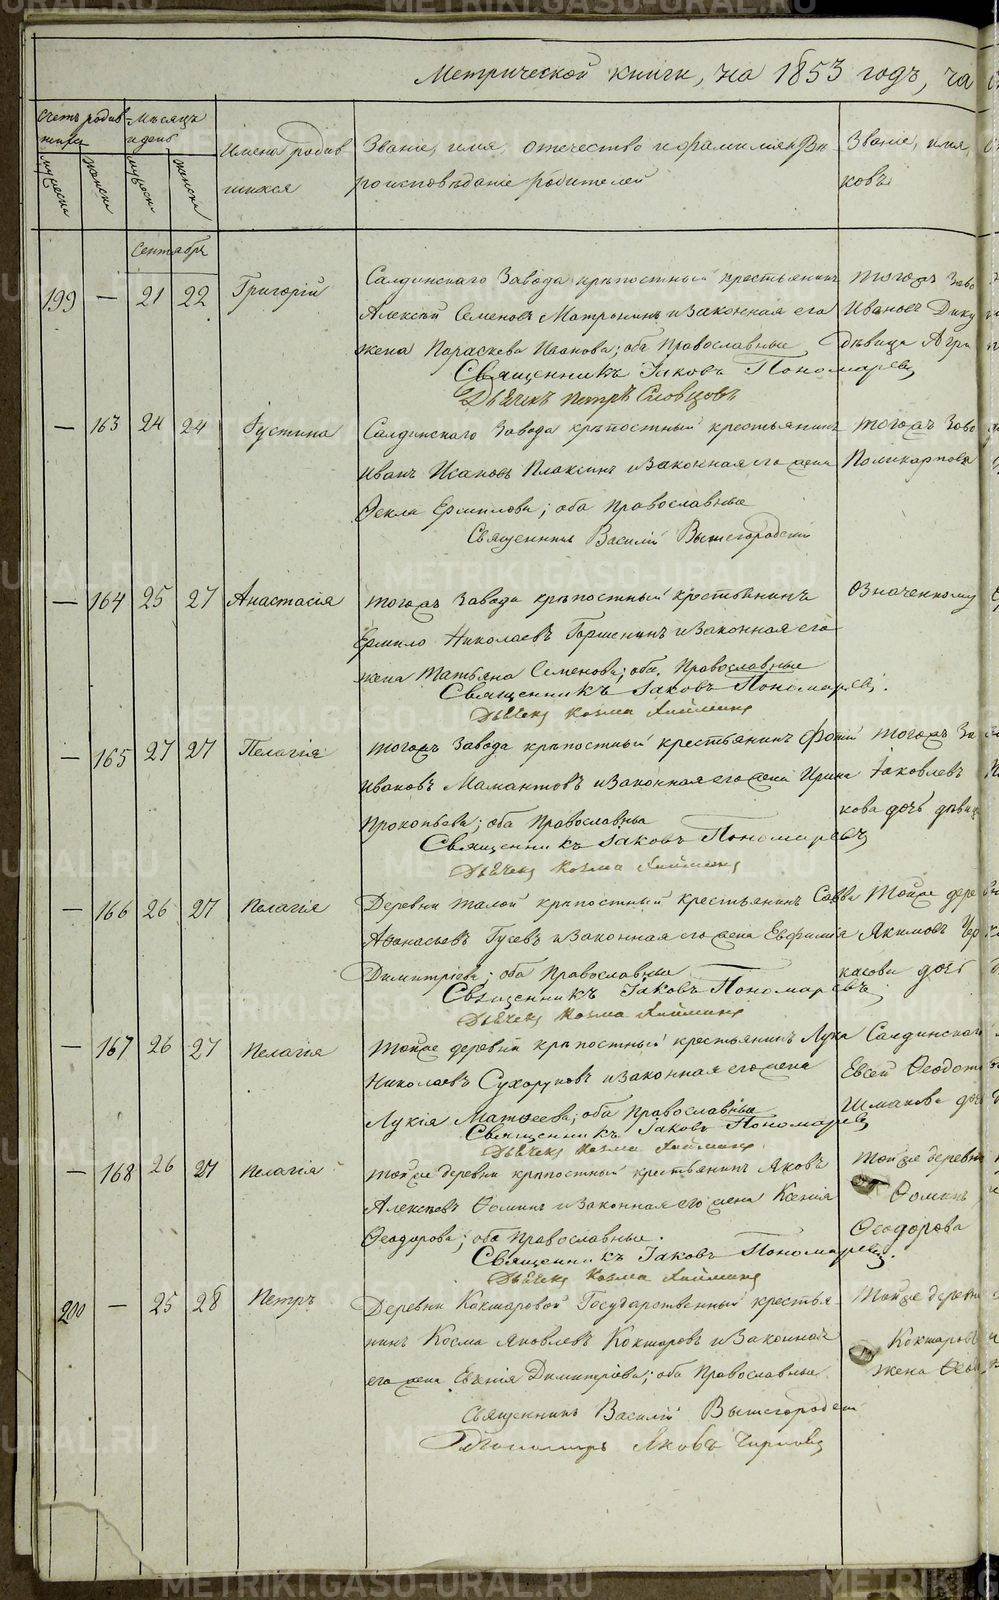 Метрической книги, на 1853 годъ, ча
Счетъ родив-
шихся
Мѣсяцъ
и день
мужеска
женска
Имена родив
шихся
Званіе, имя, отечество и фамилія
роисповѣданіе родителей
Званіе, имя,
ковъ
Сентября
199 — 21 22 Григорій
Салдинскаго Завода крѣпостный крестьянинъ
Алексѣй Семеновъ Матронинъ и законная его
жена Параскева Иванова; оба Православные
Священникъ Іаковъ Пономаревъ
Дьячекъ Петръ Словцовъ
тогожъ Заво
Ивановъ Дику
дѣвица Агри
— 163 24 24 Іустина
Салдинскаго Завода крѣпостный крестьянинъ
Иванъ Исаковъ Плаксинъ и законная его жена
Ѳекла Ермилова; оба Православные
Священникъ Василій Вышегородскій
тогожъ Заво
Поликарпова
— 164 25 27 Анастасія
тогожъ Завода крѣпостный крестьянинъ
Ермило Николаевъ Горшенинъ и законная его
жена Татьяна Семенова; оба Православные
Священникъ Іаковъ Пономаревъ.
Дьячекъ Козма
означенному
— 165 27 27 Пелагія
тогожъ Завода крѣпостный крестьянинъ Фотій
Ивановъ Мамонтовъ и законная его жена Ирина
Прокопьева; оба Православные
Священникъ Іаковъ Пономаревъ
Дьячекъ Козма
тогожъ За
Іаковлевъ
кова дочь дѣвиц
— 166 26 27 Пелагія
Деревни Малой крѣпостный крестьянинъ Савва
Аѳанасьевъ Гусевъ и законная его жена Евфимія
Димитріева; оба Православные
Священникъ Іаковъ Пономаревъ
Дьячекъ Козма
Тойже дере
Якимовъ Чер
касова дочь
— 167 26 27 Пелагія
Тойже деревни крѣпостный крестьянинъ Лука
Николаевъ Сухоруковъ и законная его жена
Лукія Матѳеева; оба Православные
Священникъ Іаковъ Пономаревъ
Дьячекъ Козма
Салдинскаго
Евсей Ѳеодот
Шмакова доч
— 168 26 27 Пелагія
тойже деревни крѣпостный крестьянинъ Яковъ
Алексѣевъ Ѳоминъ и законная его жена Ксенія
Ѳеодорова; оба Православные.
Священникъ Іаковъ Пономаревъ.
Дьячекъ Козма
тойже деревни
Ѳоминъ
Ѳеодорова
200 — 25 28 Петръ
Деревни Кокшаровой Государственный крестья-
нинъ Косма Яковлевъ Кокшаровъ и законная
его жена Евгенія Димитріева; оба Православные
Священникъ Василій Вышегородскій
Пономарь Яковъ
Тойже деревни
Кокшаров
жена
METRIKI.GASO-URAL.RU